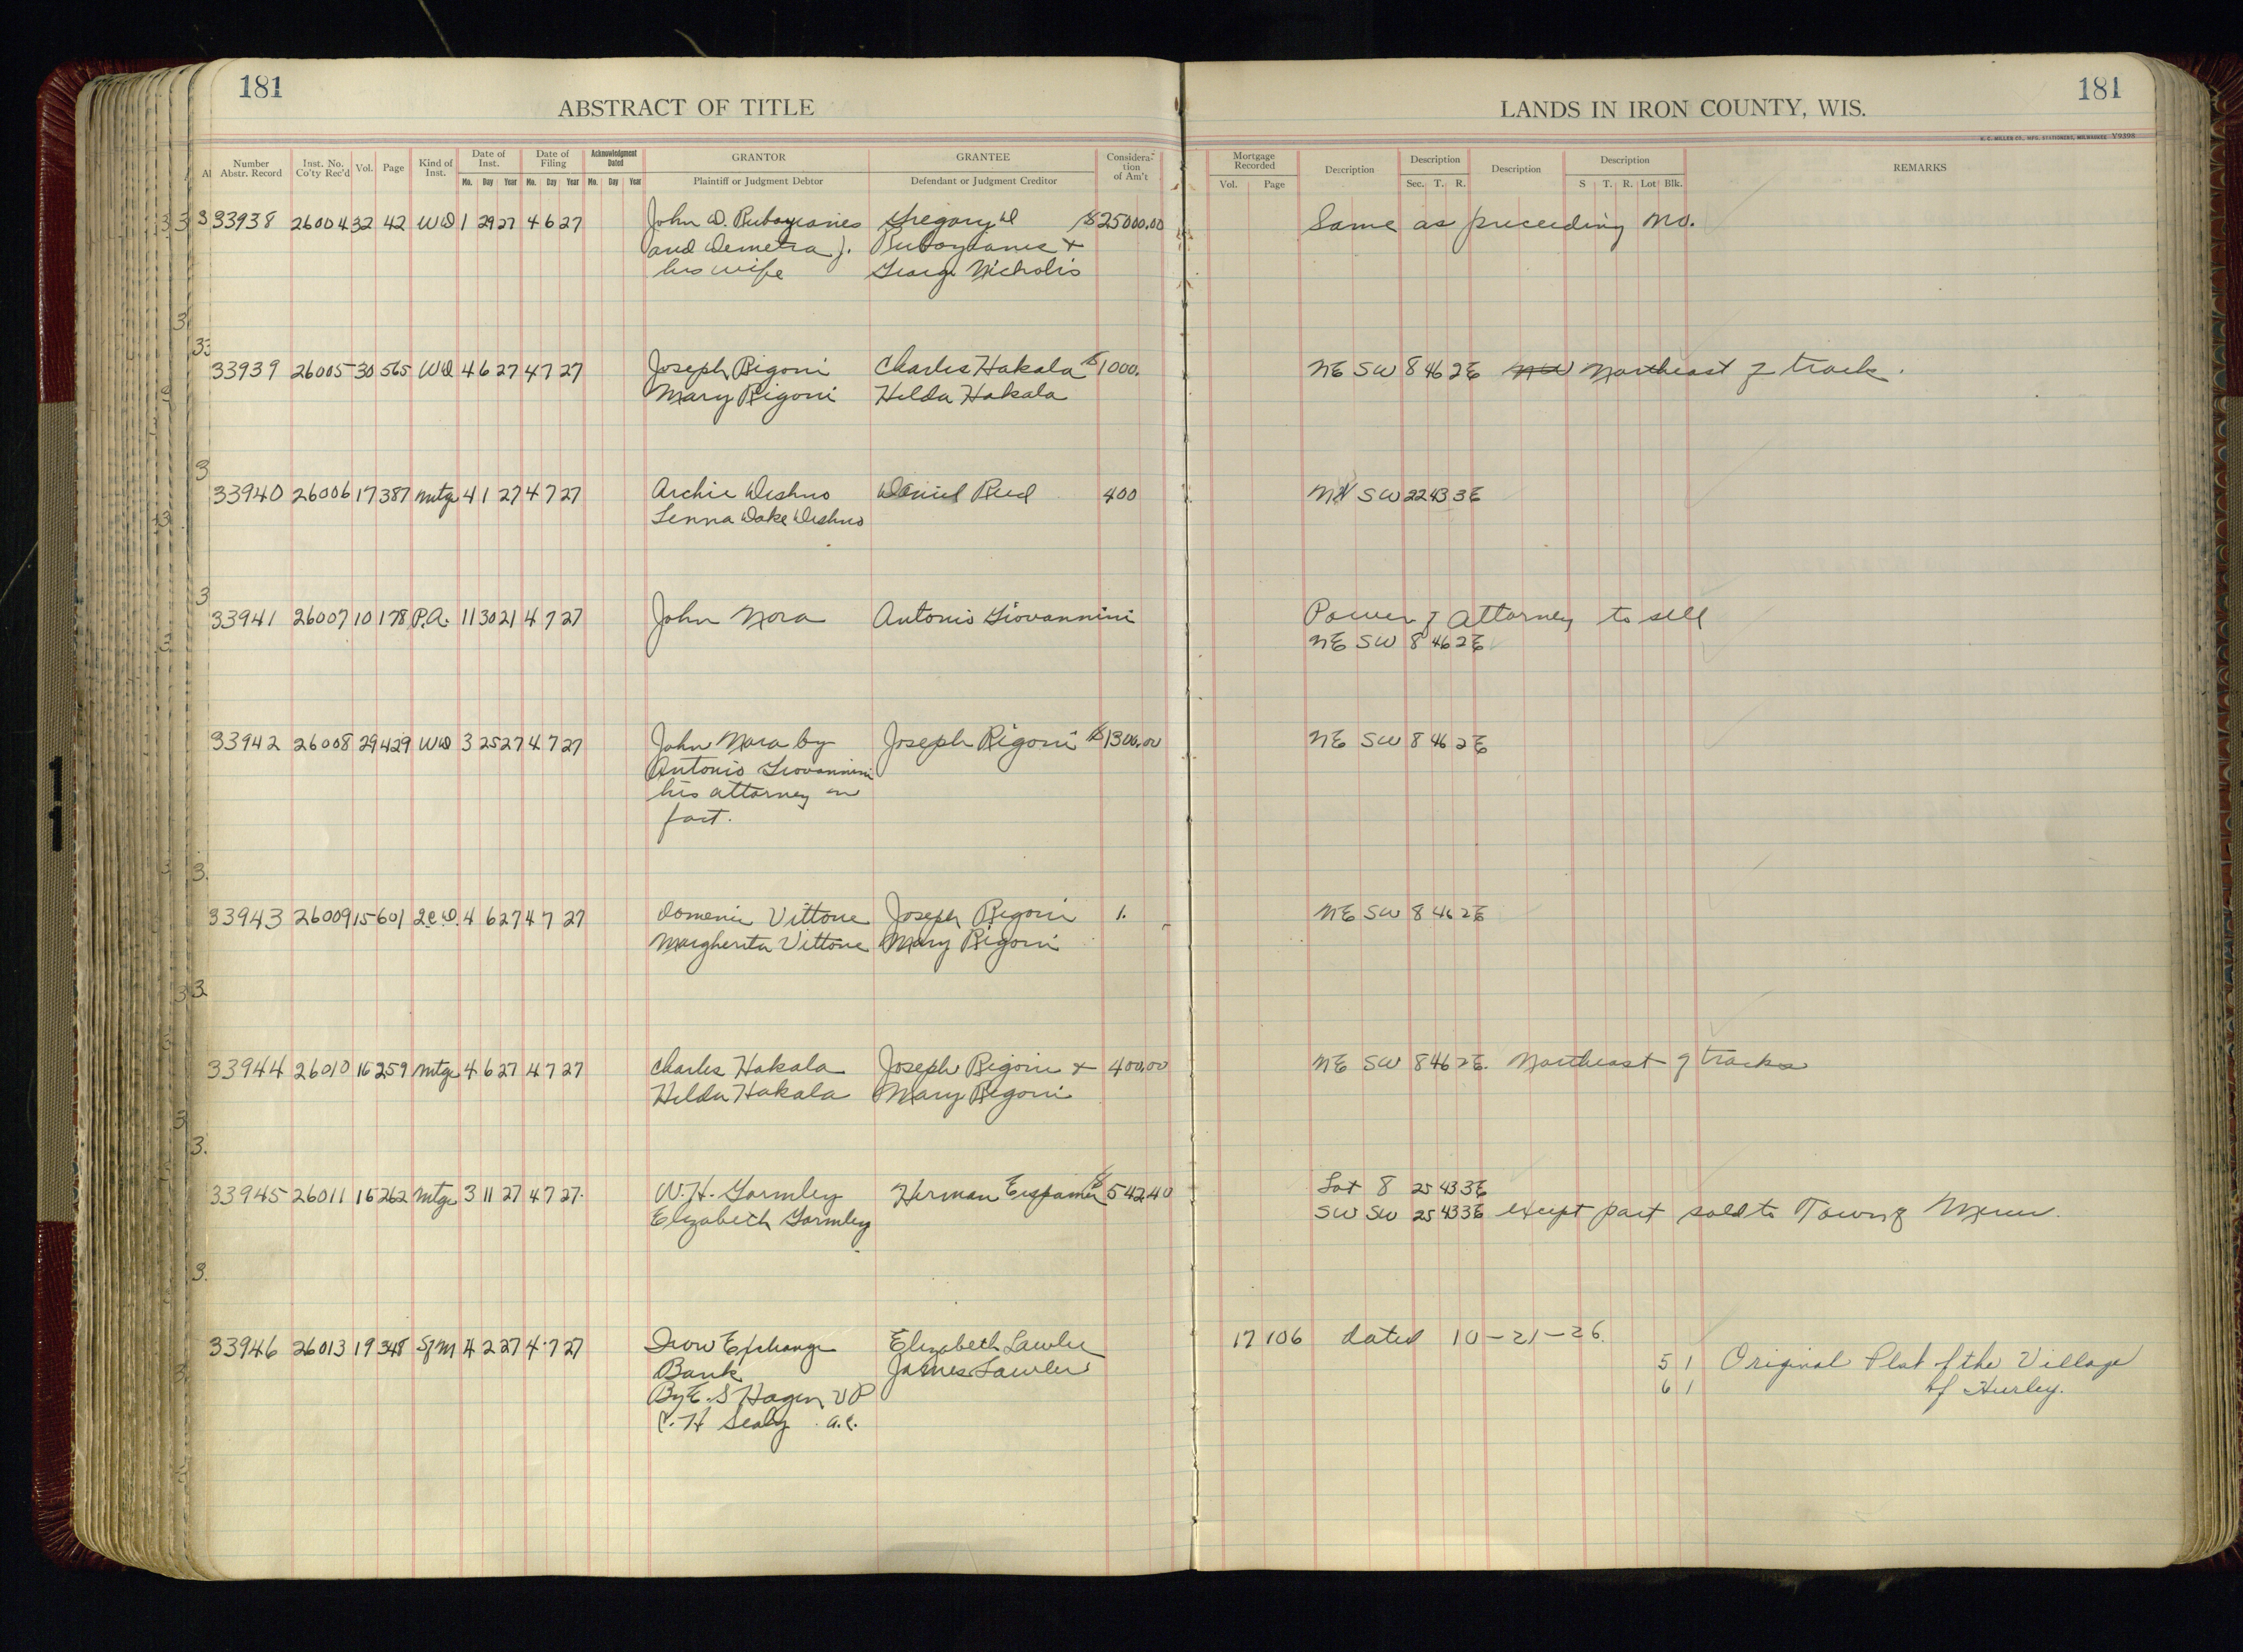 181
ABSTRACT OF TITLE
181
LANDS IN IRON COUNTY, WIS.
H. C. MILLER CO., MFG. STATIONERS, MILWAUKEE Y9398
Number Abstr. Record Inst. No. Co'ty Rec'd Vol. Page Kind of Inst. Date of Inst. Date of Filing Acknowledgment Dated GRANTOR GRANTEE Considera-tion of Am't Mortgage Recorded Description Description Description Description REMARKS
Mo. Day Year Mo. Day Year Mo. Day Year Plaintiff or Judgment Debtor Defendant or Judgment Creditor Vol. Page Sec. T. R. S T. R. Lot Blk.
33938 26004 32 42 WD 1 29 27 4 6 27 John D. Gregory D $25000.00 Same as preceeding no.
and Demetra J. &
his wife George Nicholis
33939 26005 30 565 WD 4 6 27 4 7 27 Joseph Rigoni Charles Hakala $1000. NE SW 8 46 2E Northeast of track.
Mary Rigoni Hilda Hakala
33940 26006 17 387 Mtge 4 1 27 4 7 27 Archie Deshno Daniel Reed 400 SW 22 43 3E
Lenna Dake Deshno
33941 26007 10 178 P.A. 11 30 21 4 7 27 John Nora Antonio Giovannini Power of Attorney to sell
NE SW 8 46 2E
33942 26008 29 429 WD 3 25 27 4 7 27 John Nora by Joseph Rigoni $1300.00 NE SW 8 46 2E
Antonio Giovannini
his attorney in
fact.
33943 26009 15 601 Q.C.D. 4 6 27 4 7 27 Domenic Vittone Joseph Rigoni 1. NE SW 8 46 2E
Margherita Vittone Mary Rigoni
33944 26010 16 259 Mtge 4 6 27 4 7 27 Charles Hakala Joseph Rigoni & 400.00 NE SW 8 46 2E. Northeast of tracks
Hilda Hakala Mary Rigoni
33945 26011 16 262 Mtge 3 11 27 4 7 27. W. H. Gormley Herman $542.40 Lot 8 25 43 3E
Elizabeth Gormley SW SW 25 43 3E except part sold to Town of Mercer.
33946 26013 19 348 SfM 4 2 27 4 7 27 Iron Exchange Elizabeth Lawler 17 106 dated 10-21-26.
Bank James Lawler 5 1 Original Plat of the Village
By E. S Hagen VP 6 1 of Hurley.
C. H Sealy A.C.